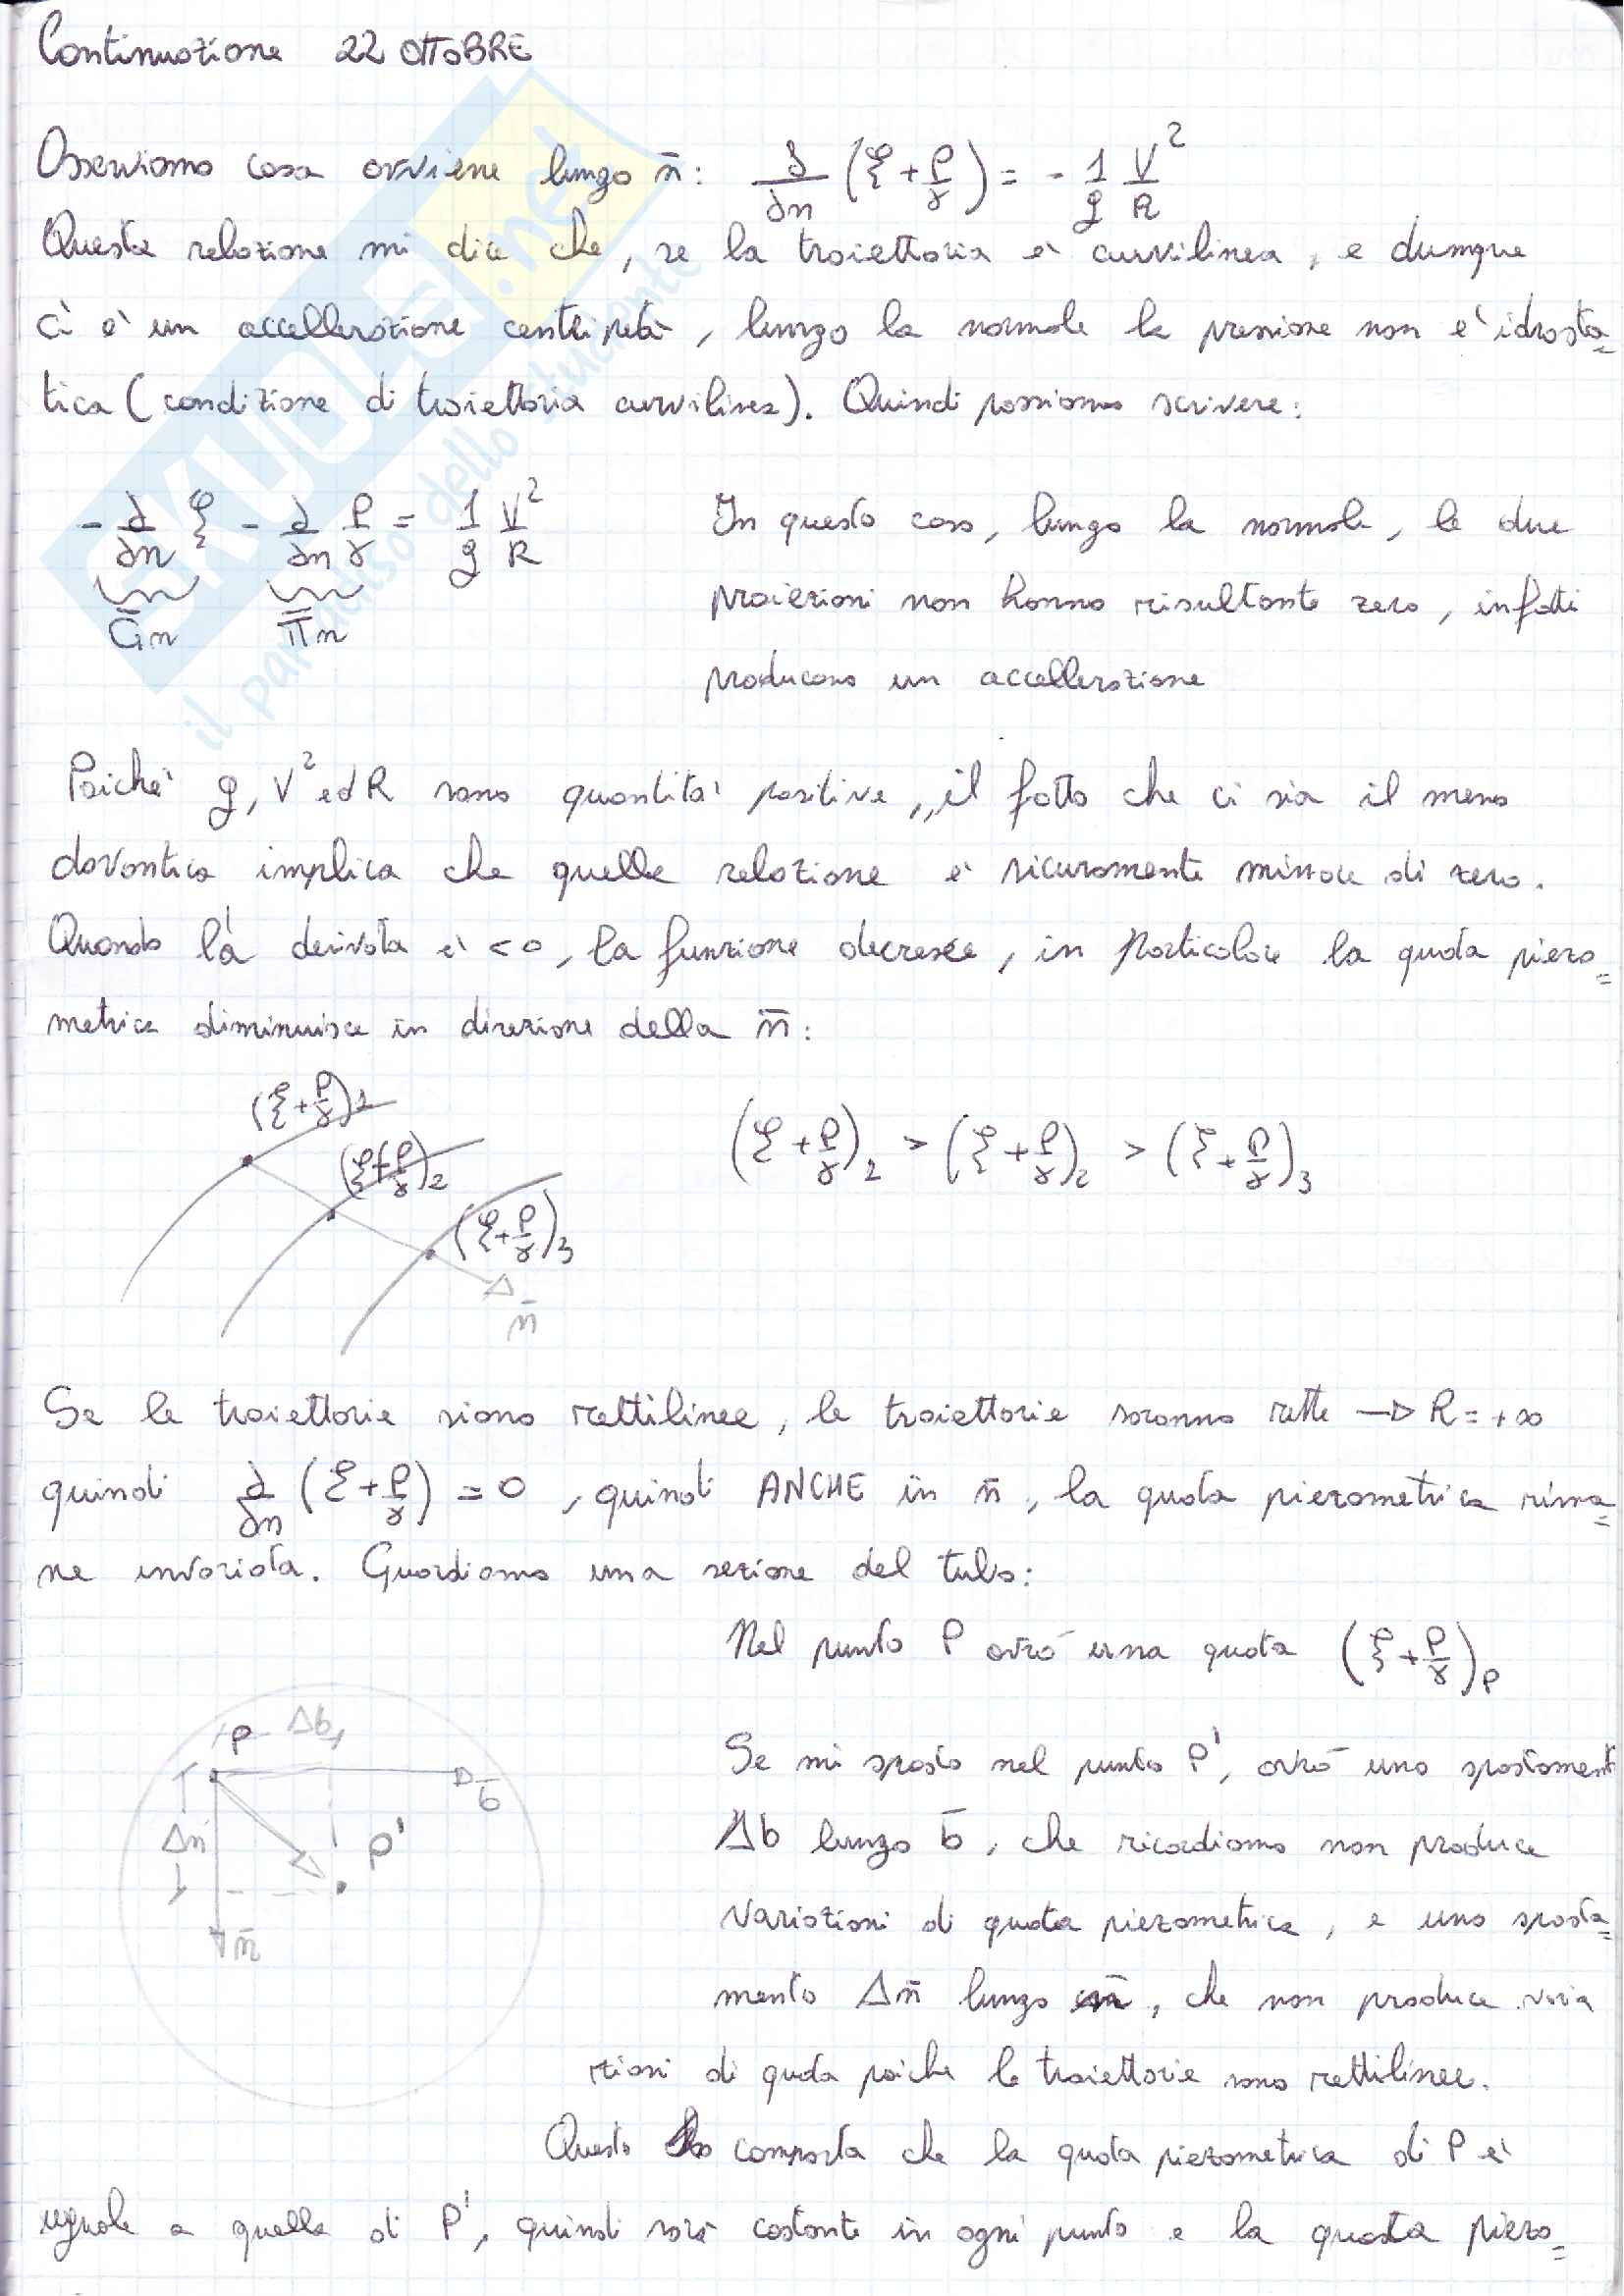 Continuazione 22 OTTOBRE
Osserviamo cosa avviene lungo n̄: ∂/∂n (ξ + P/γ) = - 1/g V²/R
Questa relazione mi dice che, se la traiettoria è curvilinea, e dunque
c'è un accellerazione centripeta, lungo la normale la pressione non è idrosta=
tica (condizione di traiettoria curvilinea). Quindi possiamo scrivere:
- ∂/∂n ξ - ∂/∂n P/γ = 1/g V²/R
Ḡn Π̄n
In questo caso, lungo la normale, le due
proiezioni non hanno risultante zero, infatti
producono un accellerazione
Poiché g, V² ed R sono quantità positive, il fatto che ci sia il meno
davantica implica che quella relazione è sicuramente minore di zero.
Quando la derivata è <0, la funzione decresce, in particolare la quota piezo=
metrica diminuisce in direzione della n̄:
(ξ + P/γ)1
(ξ + P/γ)2
(ξ + P/γ)3
n̄
(ξ + P/γ)1 > (ξ + P/γ)2 > (ξ + P/γ)3
Se le traiettorie siano rettilinee, le traiettorie saranno rette → R = +∞
quindi ∂/∂n (ξ + P/γ) = 0, quindi ANCHE in n̄, la quota piezometrica rima=
ne invariata. Guardiamo una sezione del tubo:
Nel punto P avrò una quota (ξ + P/γ)P
P Δb
b̄
Δn̄
P'
n̄
Se mi sposto nel punto P', avrò uno spostament
Δb lungo b̄, che ricordiamo non produce
variazioni di quota piezometrica, e uno sposta=
mento Δn̄ lungo n̄, che non produce varia
zioni di quota poiche le traiettorie sono rettilinee.
Questo comporta che la quota piezometrica di P è
uguale a quella di P', quindi sarà costante in ogni punto e la quota piezo=
SKUOLA.net
il paradiso dello studente